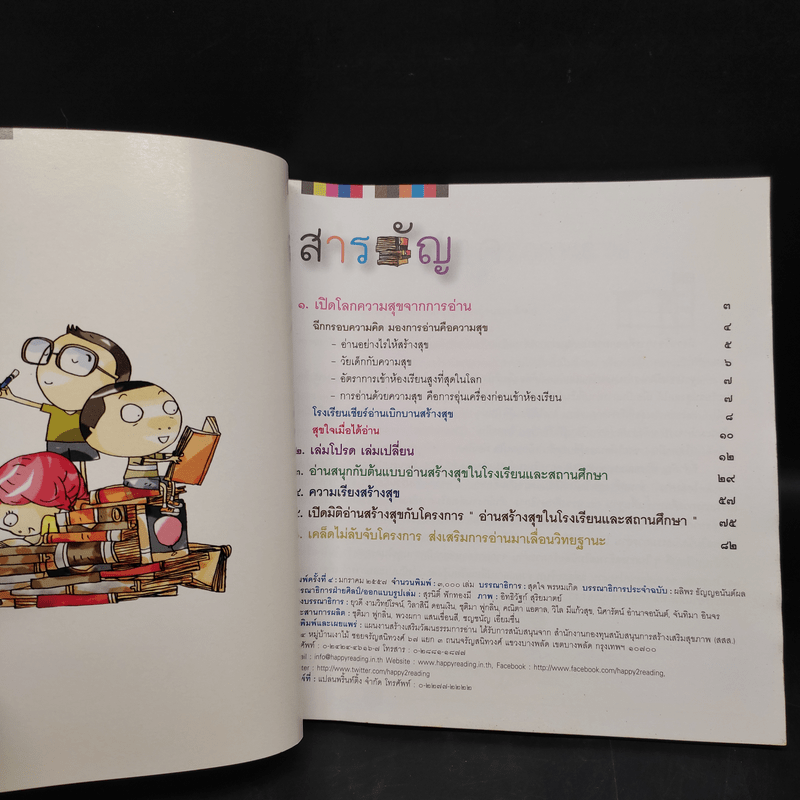 สารบัญ
๑. เปิดโลกความสุขจากการอ่าน ๓
ฉีกกรอบความคิด มองการอ่านคือความสุข ๔
- อ่านอย่างไรให้สร้างสุข ๕
- วัยเด็กกับความสุข ๖
- อัตราการเข้าห้องเรียนสูงที่สุดในโลก ๗
- การอ่านด้วยความสุข คือการอุ่นเครื่องก่อนเข้าห้องเรียน ๗
โรงเรียนเชียร์อ่านเบิกบานสร้างสุข ๘
สุขใจเมื่อได้อ่าน ๑๐
๒. เล่มโปรด เล่มเปลี่ยน ๑๒
๓. อ่านสนุกกับต้นแบบอ่านสร้างสุขในโรงเรียนและสถานศึกษา ๒๙
๔. ความเรียงสร้างสุข ๕๗
๕. เปิดมิติอ่านสร้างสุขกับโครงการ " อ่านสร้างสุขในโรงเรียนและสถานศึกษา " ๗๕
. เคล็ดไม่ลับจับโครงการ ส่งเสริมการอ่านมาเลื่อนวิทยฐานะ ๘๒
มพ์ครั้งที่ ๔ : มกราคม ๒๕๕๗ จำนวนพิมพ์ : ๓,๐๐๐ เล่ม บรรณาธิการ : สุดใจ พรหมเกิด บรรณาธิการประจำฉบับ : ผลิพร ธัญญอนันต์ผล
รณาธิการฝ่ายศิลป์/ออกแบบรูปเล่ม : สุรนิติ์ ฟักทองมี ภาพ : อิทธิวัฐก์ สุริยมาตย์
งบรรณาธิการ : ยุวดี งามวิทย์โรจน์, วิลาสินี ดอนเงิน, ชุติมา ฟูกลิ่น, คณิตา แอตาล, วิไล มีแก้วสุข, นิศารัตน์ อำนาจอนันต์, จันทิมา อินจร
ะสานการผลิต : ชุติมา ฟูกลิ่น, พวงผกา แสนเขื่อนสี, ชญชนัญ เอี่ยมชื่น
พิมพ์และเผยแพร่ : แผนงานสร้างเสริมวัฒนธรรมการอ่าน ได้รับการสนับสนุนจาก สำนักงานกองทุนสนับสนุนการสร้างเสริมสุขภาพ (สสส.)
๔ หมู่บ้านเงาไม้ ซอยจรัญสนิทวงศ์ ๖๗ แยก ๓ ถนนจรัญสนิทวงศ์ แขวงบางพลัด เขตบางพลัด กรุงเทพฯ ๑๐๗๐๐
ศัพท์ : ๐-๒๔๒๔-๔๖๑๖-๗ โทรสาร : ๐-๒๘๘๑-๑๘๗๗
ail : info@happyreading.in.th Website : www.happyreading.in.th, Facebook : http://www.facebook.com/happy2reading,
tter : http://www.twitter.com/happy2reading
พ์ที่ : แปลนพริ้นท์ติ้ง จำกัด โทรศัพท์ : ๐-๒๒๗๗-๒๒๒๒